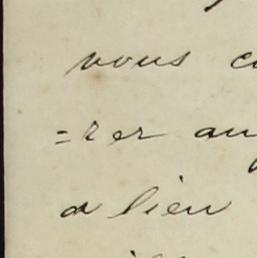 vous
=rer au
a lieu